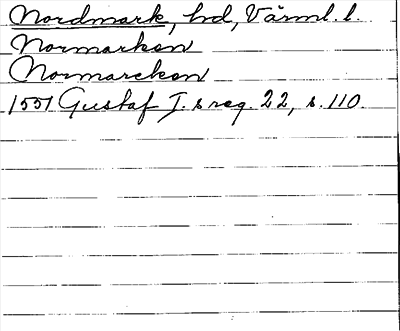 Nordmark, hd, Värml. l.
Normarkon
Normarckon
1551 Gustaf I. s reg. 22, s. 110.